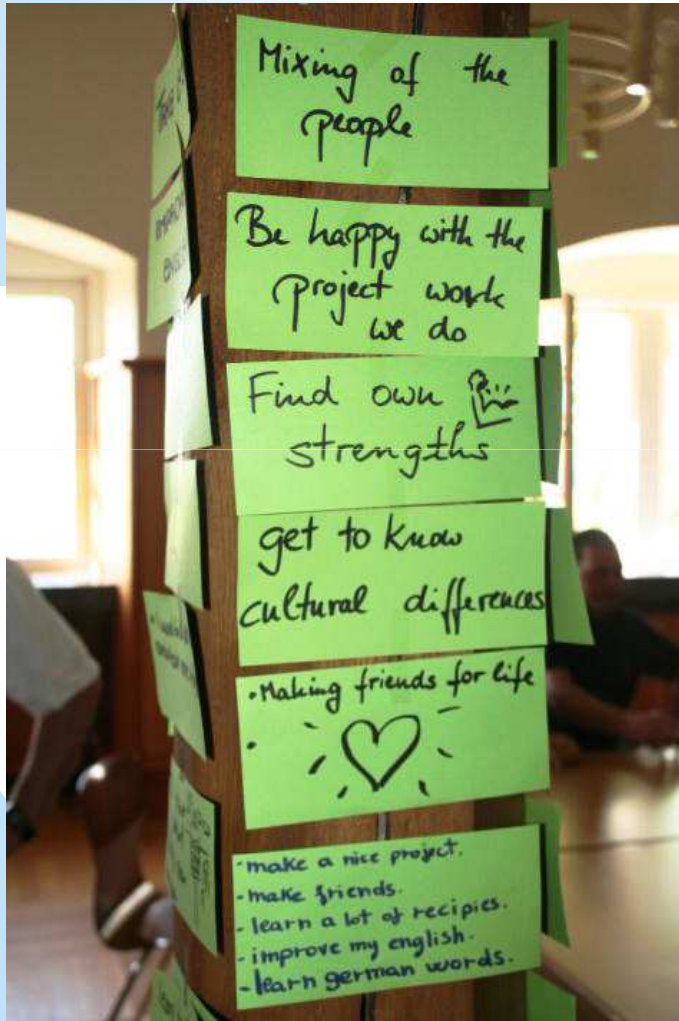 Mixing of the
people
Be happy with the
project work
we do
Find own
strengths
get to know
cultural differences
• Making friends for life
•
- make a nice project.
- make friends.
- learn a lot of recipies.
- improve my english.
- learn german words.